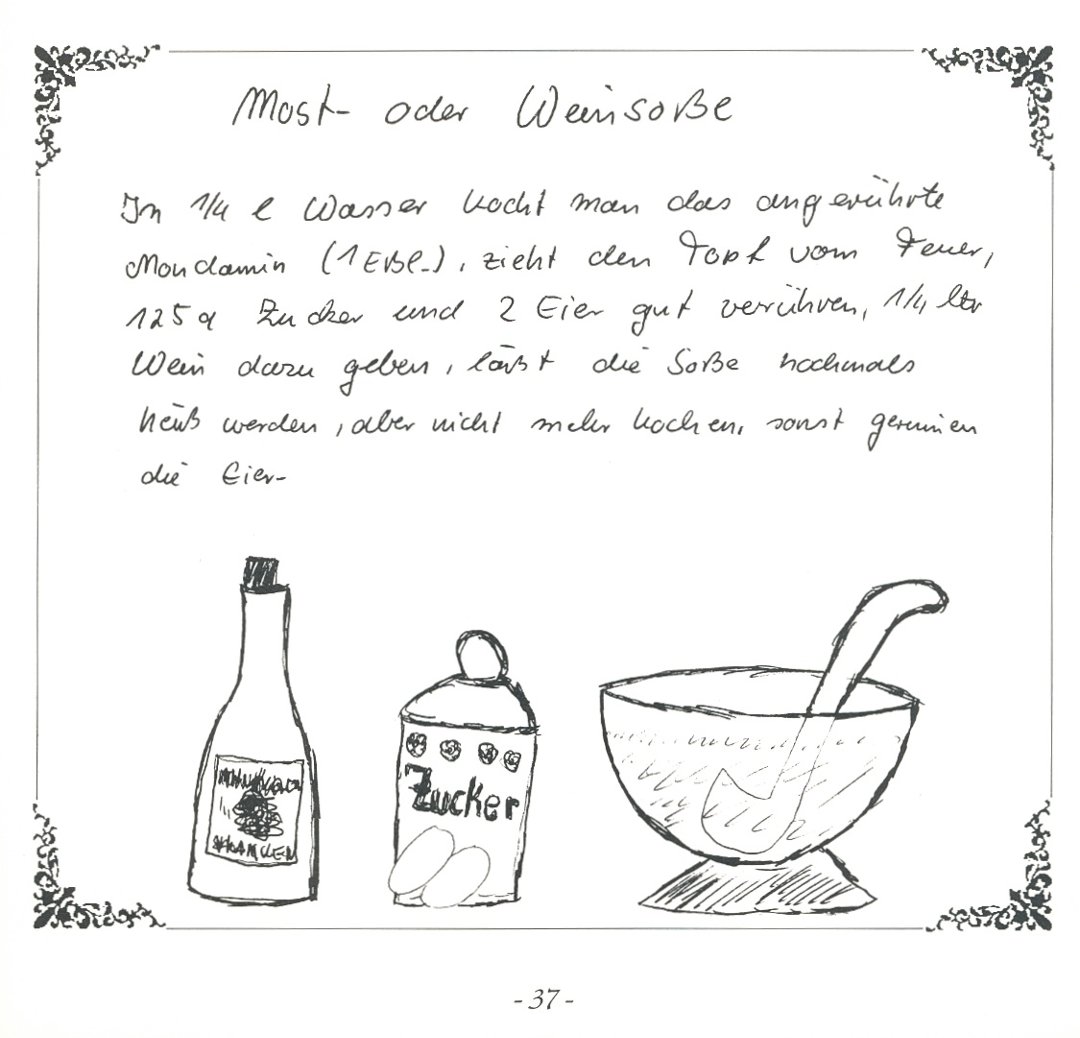 Most- oder Weinsoße
In 1/4 l Wasser kocht man das angerührte
Mondamin (1 Eßl.), zieht den Topf vom Feuer,
125 g Zucker und 2 Eier gut verrühren, 1/4 ltr
Wein dazu geben, läßt die Soße nochmals
heiß werden, aber nicht mehr kochen, sonst gerinnen
die Eier.
Zucker
- 37 -